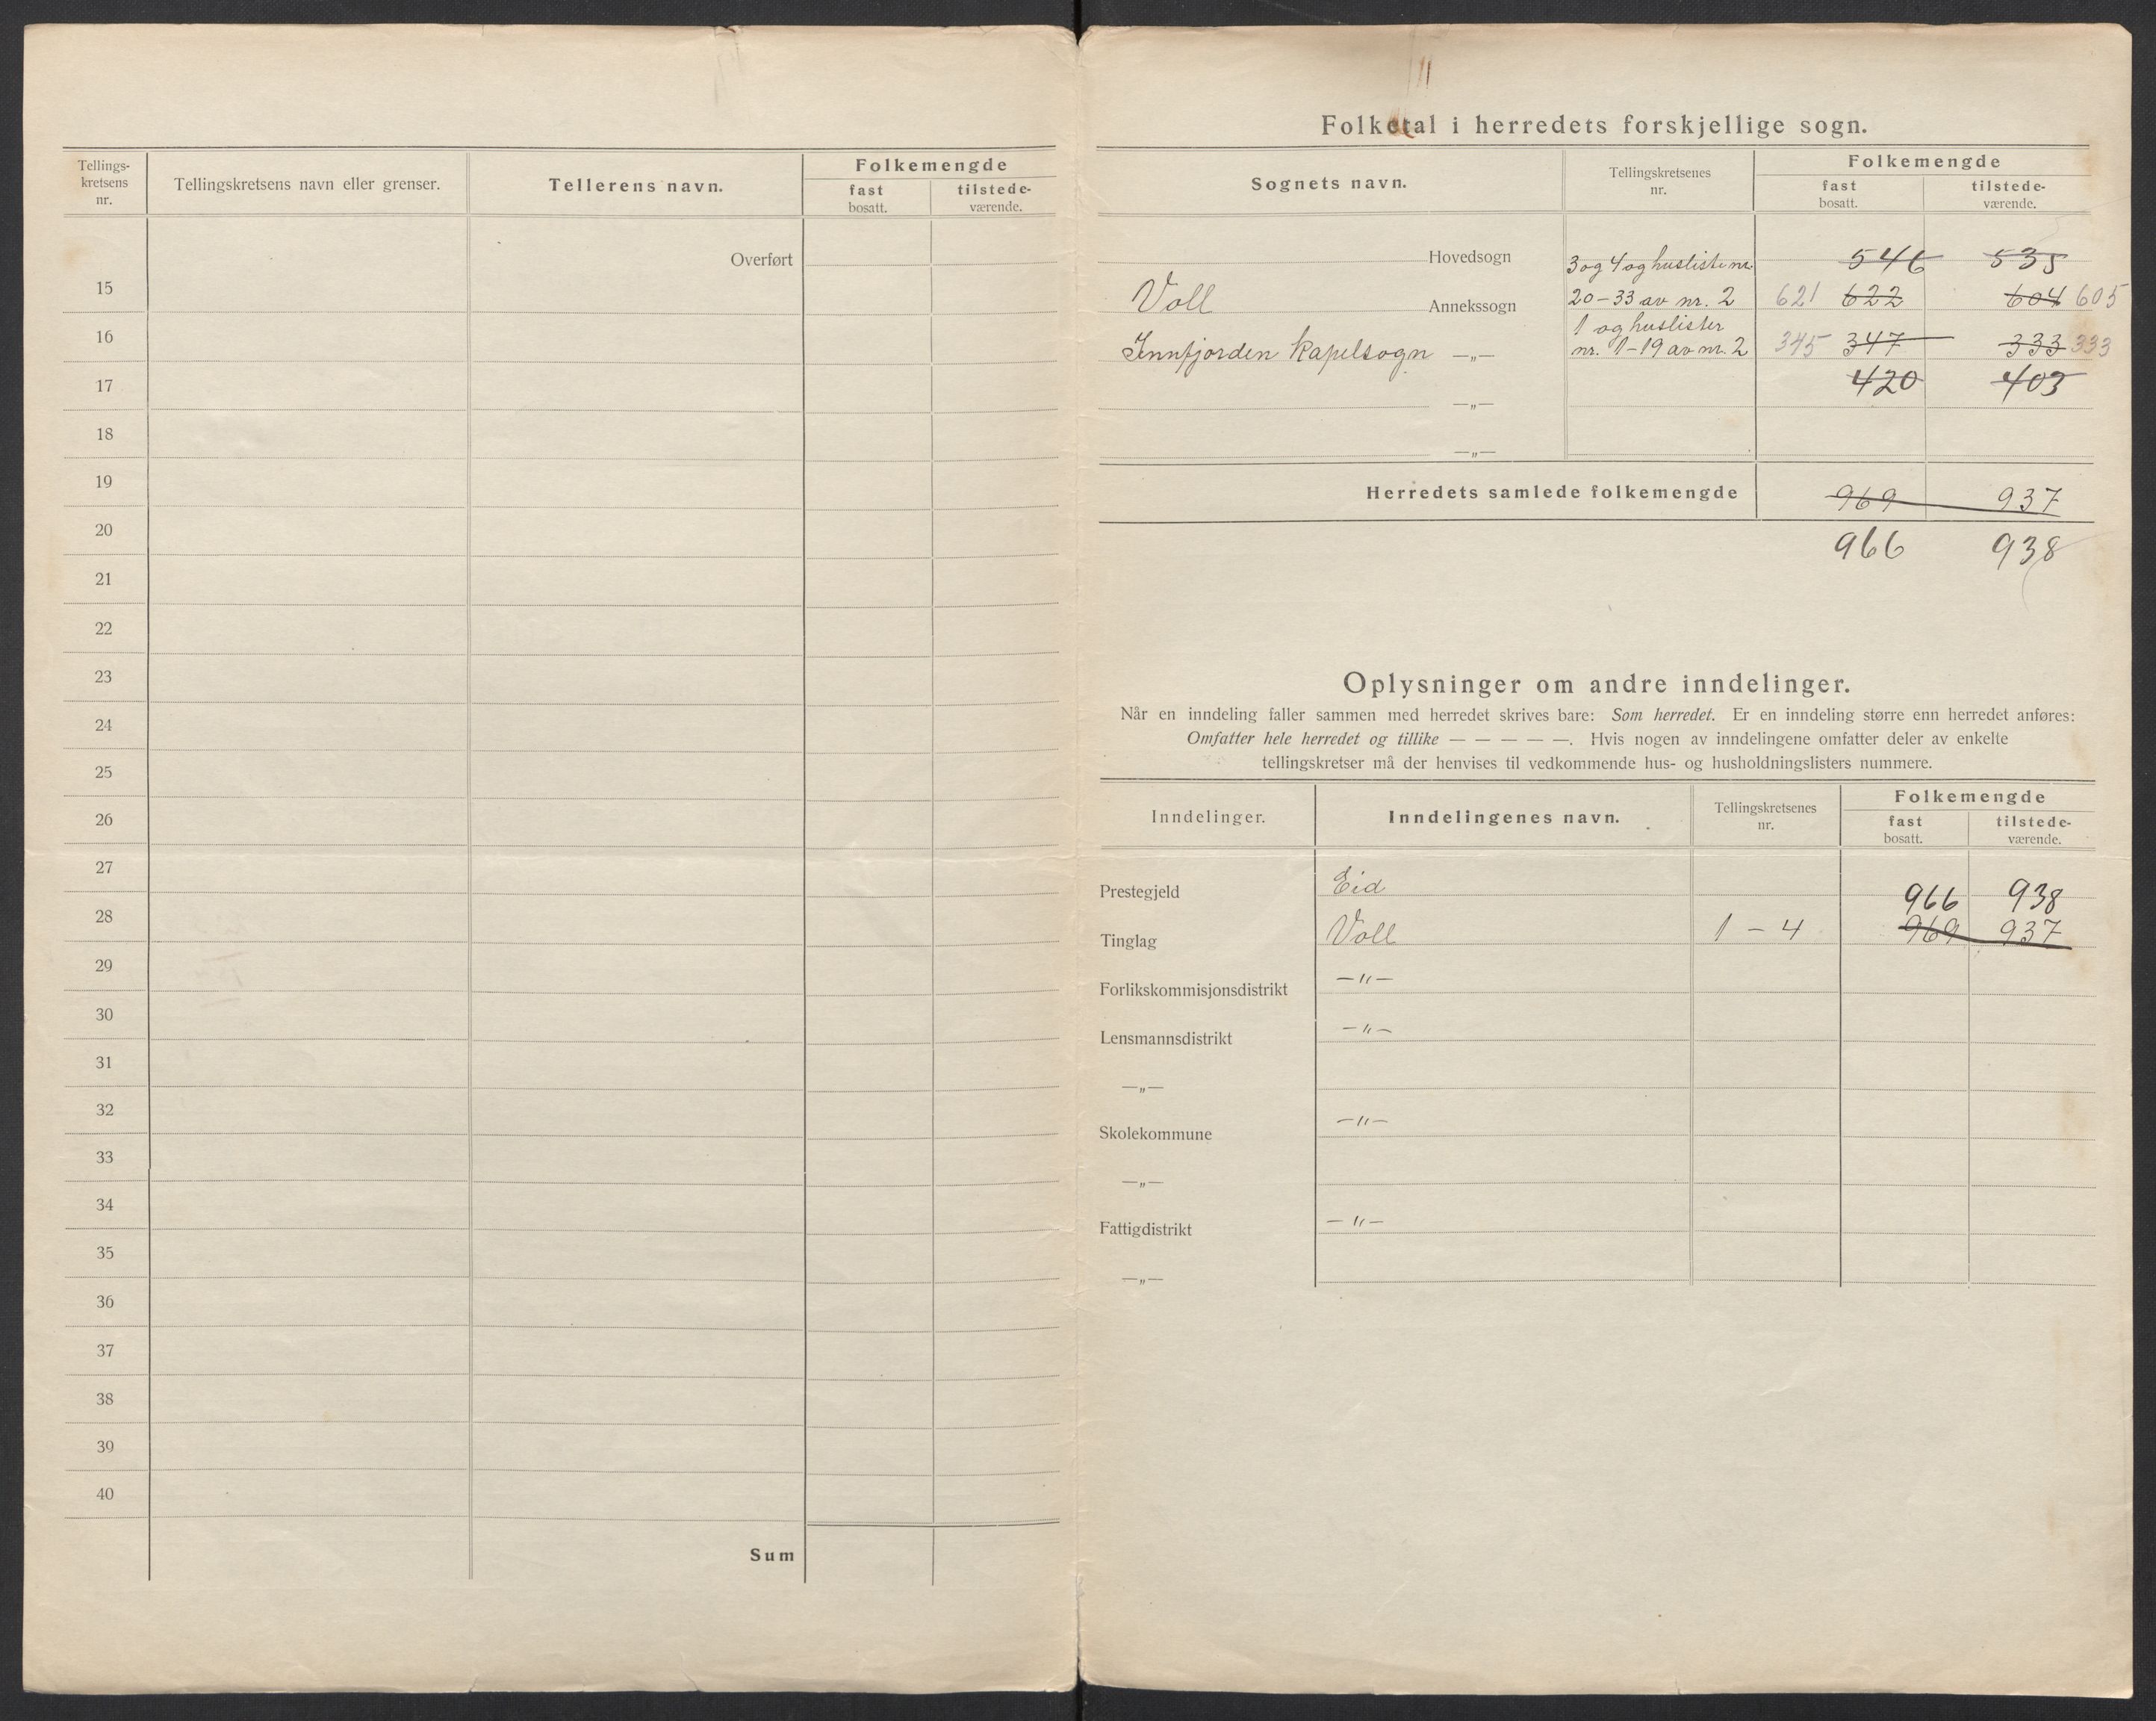 Tellings-
kretsens
nr.
Tellingskretsens navn eller grenser.
Tellerens navn.
Folkemengde
fast
bosatt.
tilstede-
værende.
Overført
15
16
17
18
19
20
21
22
23
24
25
26
27
28
29
30
31
32
33
34
35
36
37
38
39
40
Sum
Folketal i herredets forskjellige sogn.
Sognets navn.
Tellingskretsenes
nr.
Folkemengde
fast
bosatt.
tilstede-
værende.
Hovedsogn 3 og 4 og husliste nr. 546 535
Voll Annekssogn 20-33 av nr. 2 621 622 604 605
1 og huslister
Innfjorden kapelsogn —„— nr. 1-19 av nr. 2 345 347 333 333
420 403
—„—
—„—
Herredets samlede folkemengde 969 937
966 938
Oplysninger om andre inndelinger.
Når en inndeling faller sammen med herredet skrives bare: Som herredet. Er en inndeling større enn herredet anføres:
Omfatter hele herredet og tillike — — — — —. Hvis nogen av inndelingene omfatter deler av enkelte
tellingskretser må der henvises til vedkommende hus- og husholdningslisters nummere.
Inndelinger.
Inndelingenes navn.
Tellingskretsenes
nr.
Folkemengde
fast
bosatt.
tilstede-
værende.
Prestegjeld Eid 966 938
Tinglag Voll 1 - 4 969 937
Forlikskommisjonsdistrikt —„—
Lensmannsdistrikt —„—
—„—
Skolekommune —„—
—„—
Fattigdistrikt —„—
—„—